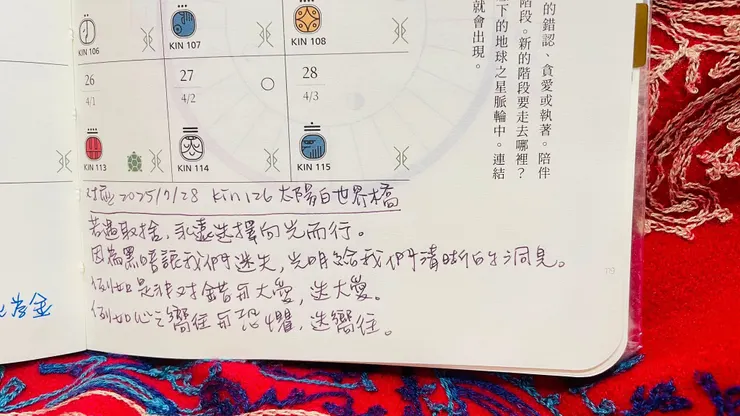 的錯認、貪愛或執著。陪伴
階段。新的階段要走去哪裡？
下的地球之星脈輪中。連結
就會出現。
KIN 106 KIN 107 KIN 108
26 27 28
4/1 4/2 4/3
KIN 113 KIN 114 KIN 115
対應 2025/7/28 Kin 126 太陽白世界橋
若遇取捨，永遠选擇向光而行。
因為黑暗讓我們迷失，光明給我們清晰的洞見。
例如是非対錯與大愛，选大愛。
例如心之嚮往與恐懼，选嚮往。
金